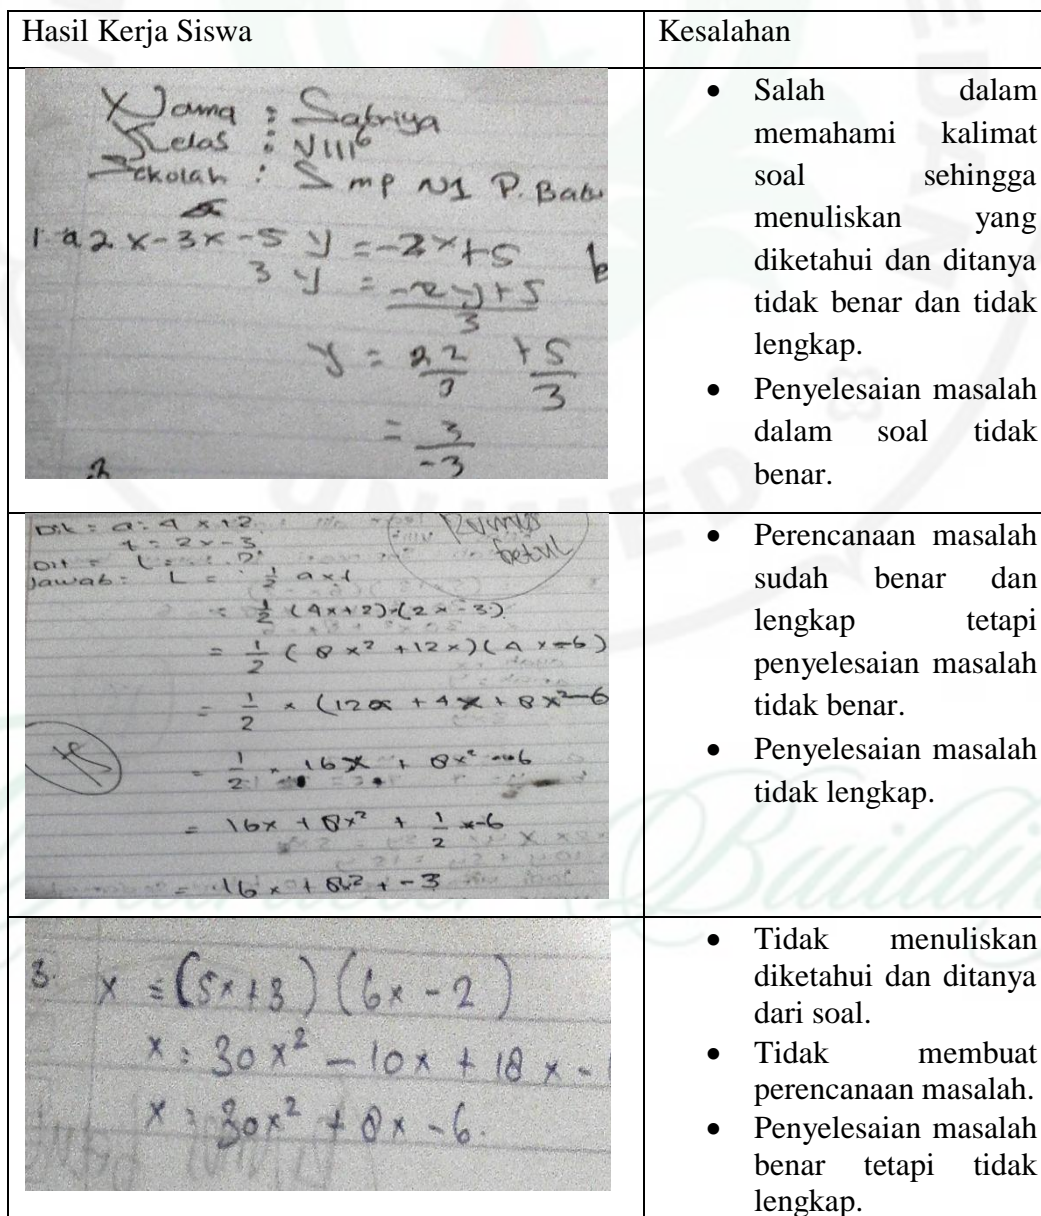 Hasil Kerja Siswa
Kesalahan
Nama : Sabriya
Kelas : VIII6
Sekolah : Smp N1 P. Batu
1. a 2x-3x-5 y = -2x+5
3y = -2y+5
3
y = 22 +5
3
= 3
-3
Salah dalam
memahami kalimat
soal sehingga
menuliskan yang
diketahui dan ditanya
tidak benar dan tidak
lengkap.
Penyelesaian masalah
dalam soal tidak
benar.
Dik = a = 4x+2
t = 2x-3
Dit = L = ?
Jawab = L = 1/2 a x t
= 1/2 (4x+2)-(2x-3)
= 1/2 (8x² +12x)(4x-6)
= 1/2 x (12x + 4x + 8x²-6
= 1/2 x 16x + 8x² -6
= 16x + 8x² + 1/2 x-6
= 16x + 8x² + -3
Rumus
betul
Perencanaan masalah
sudah benar dan
lengkap tetapi
penyelesaian masalah
tidak benar.
Penyelesaian masalah
tidak lengkap.
3. x = (5x+3) (6x-2)
x = 30x² - 10x + 18x -
x = 30x² + 8x - 6.
Tidak menuliskan
diketahui dan ditanya
dari soal.
Tidak membuat
perencanaan masalah.
Penyelesaian masalah
benar tetapi tidak
lengkap.
UNIMED
Building